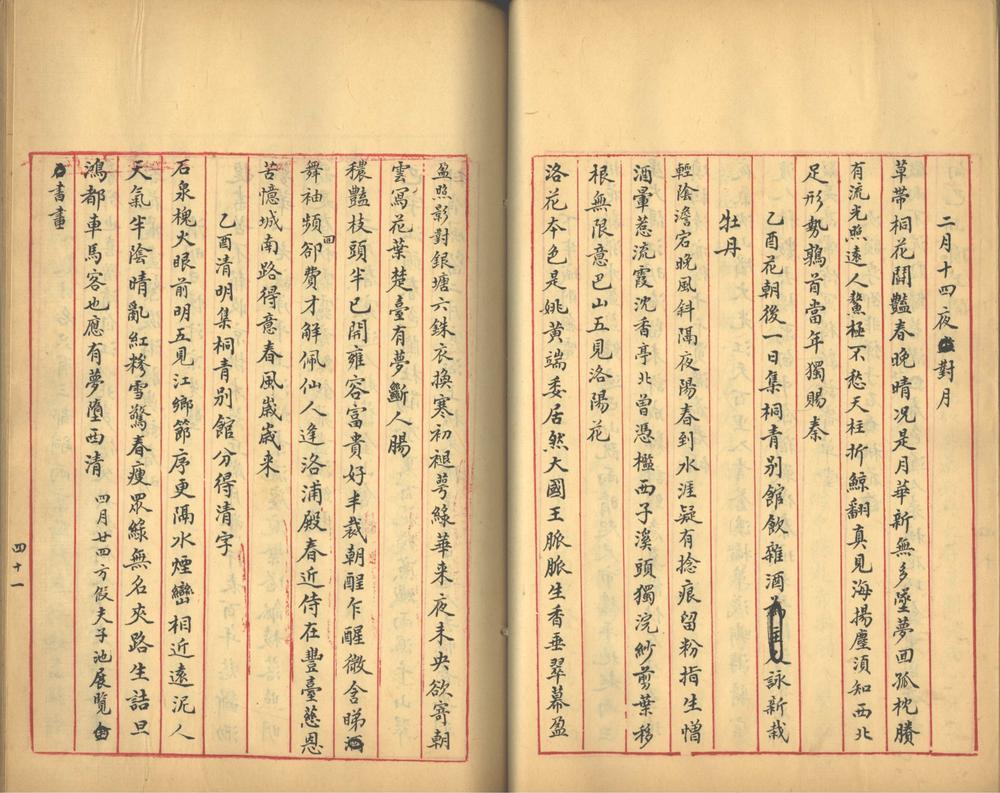 二月十四夜對月
草帶桐花鬭豔春晚晴况是月華新無多墜夢回孤枕賸
有流光照遠人鰲極不愁天柱折鯨翻真見海揚塵須知西北
足形勢鶉首當年獨賜秦
乙酉花朝後一日集桐青别館飲雜酒詠新栽
牡丹
輕陰澹宕晚風斜隔夜陽春到水涯疑有捻痕留粉指生憎
酒暈惹流霞沈香亭北曾憑檻西子溪頭獨浣紗剪葉移
根無限意巴山五見洛陽花
洛花本色是姚黃端委居然大國王脈脈生香垂翠幕盈
盈照影對銀塘六銖衣換寒初褪萼綠華来夜未央欲寄朝
雲寫花葉楚臺有夢斷人腸
穠豔枝頭半已開雍容富貴好丰裁朝酲乍醒微含睇
舞袖頻回卻費才解佩仙人逢洛浦殿春近侍在豐臺慈恩
苦憶城南路得意春風歲歲来
乙酉清明集桐青别館分得清字
石泉槐火眼前明五見江鄉節序更隔水煙巒相近遠泥人
天氣半陰晴亂紅糝雪驚春瘦眾綠無名夾路生詰旦
鴻都車馬客也應有夢墮西清 四月廿四方假夫子池展覽
書畫
四十一